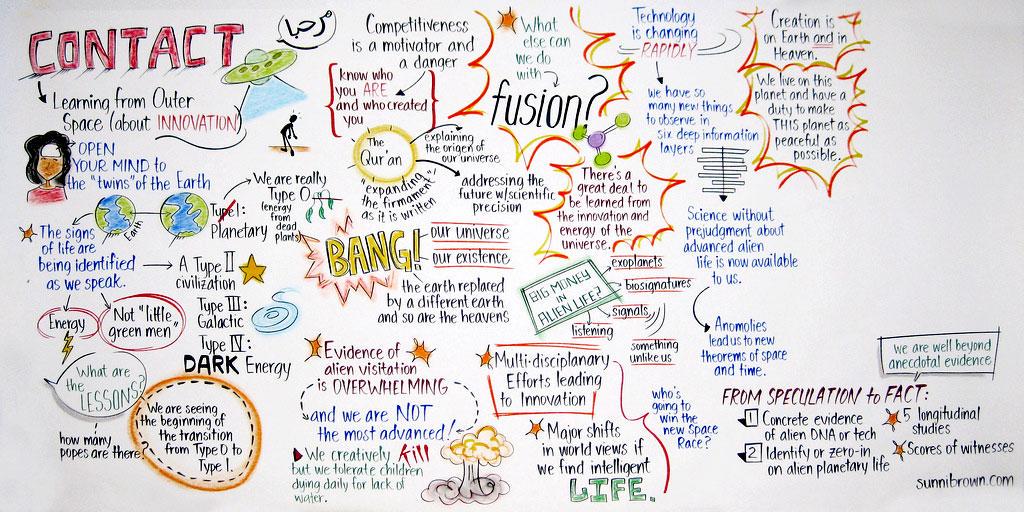 CONTACT
مرحبا
Learning from Outer
Space (about INNOVATION)
OPEN
YOUR MIND to
the "twins" of the Earth
Earth
The signs
of life are
being identified
as we speak.
Energy
Not "little
green men"
What are
the LESSONS?
how many
popes are there?
We are really
Type 0
(energy
from
dead
plants)
Type I:
Planetary
A Type II
civilization
Type III:
Galactic
Type IV:
DARK Energy
We are seeing
the beginning of
the transition
from Type 0 to
Type 1.
Competitiveness
is a motivator and
a danger
know who
you ARE
and who created
you
The
Qur'an
explaining
the origen of
our universe
"expanding
the firmament
as it is written"
addressing the
future w/scientific
precision
BANG!
our universe
our existence
the earth replaced
by a different earth
and so are the heavens
Evidence of
alien visitation
is OVERWHELMING
and we are NOT
the most advanced!
We creatively Kill
but we tolerate children
dying daily for lack of
water.
What
else can
we do
with
fusion?
There's a
great deal to
be learned from
the innovation and
energy of the
universe.
BIG MONEY
IN
ALIEN LIFE?
exoplanets
biosignatures
signals
listening
something
unlike us
Multi-disciplanary
Efforts leading
to Innovation
Major shifts
in world views if
we find intelligent
LIFE.
who's
going to
win the
new space
Race?
Technology
is changing
RAPIDLY
we have so
many new things
to observe in
six deep information
layers
Science without
prejudgment about
advanced alien
life is now available
to us.
Anomolies
lead us to new
theorems of space
and time.
Creation is
on Earth and in
Heaven.
We live on this
planet and have a
duty to make
THIS planet as
peaceful as
possible.
we are well beyond
anecdotal evidence
FROM SPECULATION to FACT:
1 Concrete evidence
of alien DNA or tech
2 Identify or zero-in
on alien planetary life
5 longitudinal
studies
Scores of witnesses
sunnibrown.com